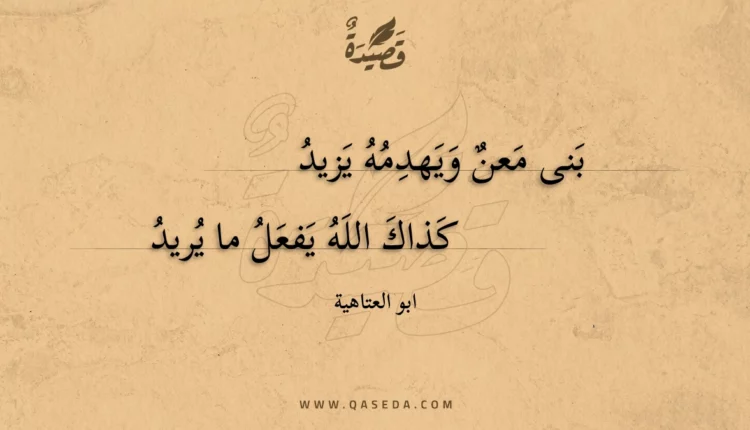 قَصِيدَةٌ
بَنى مَعنٌ وَيَهدِمُهُ يَزيدُ
كَذاكَ اللَهُ يَفعَلُ ما يُريدُ
ابو العتاهية
WWW.QASEDA.COM